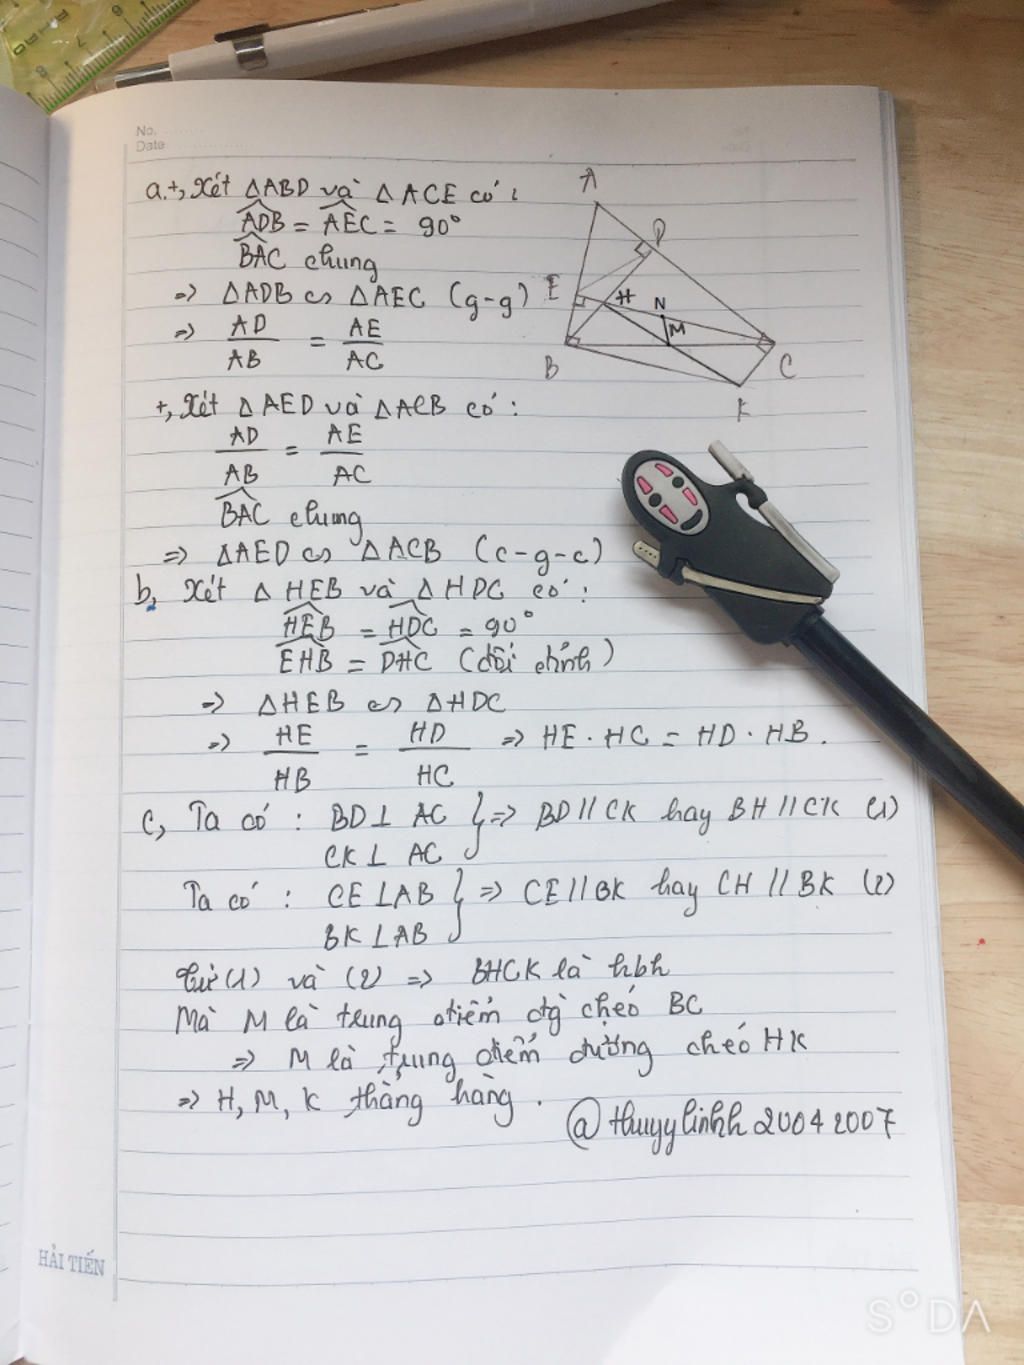 No.
Date
a.+, Xét ΔABD và ΔACE có:
ADB = AEC = 90°
BAC chung
=> ΔADB ∽ ΔAEC (g-g)
=> AD/AB = AE/AC
+, Xét ΔAED và ΔACB có:
AD/AB = AE/AC
BAC chung
=> ΔAED ∽ ΔACB (c-g-c)
b, Xét ΔHEB và ΔHDC có:
HEB = HDC = 90°
EHB = DHC (đối đỉnh)
=> ΔHEB ∽ ΔHDC
=> HE/HB = HD/HC => HE . HC = HD . HB.
c, Ta có: BD⊥AC } => BD//CK hay BH//CK (1)
CK⊥AC
Ta có: CE⊥AB } => CE//BK hay CH//BK (2)
BK⊥AB
Từ (1) và (2) => BHCK là hbh
Mà M là trung điểm đg chéo BC
=> M là trung điểm đường chéo HK
=> H, M, K thẳng hàng.
@thuyylinhh20042007
A
D
E
H
N
M
B
C
K
HẢI TIẾN
SODA